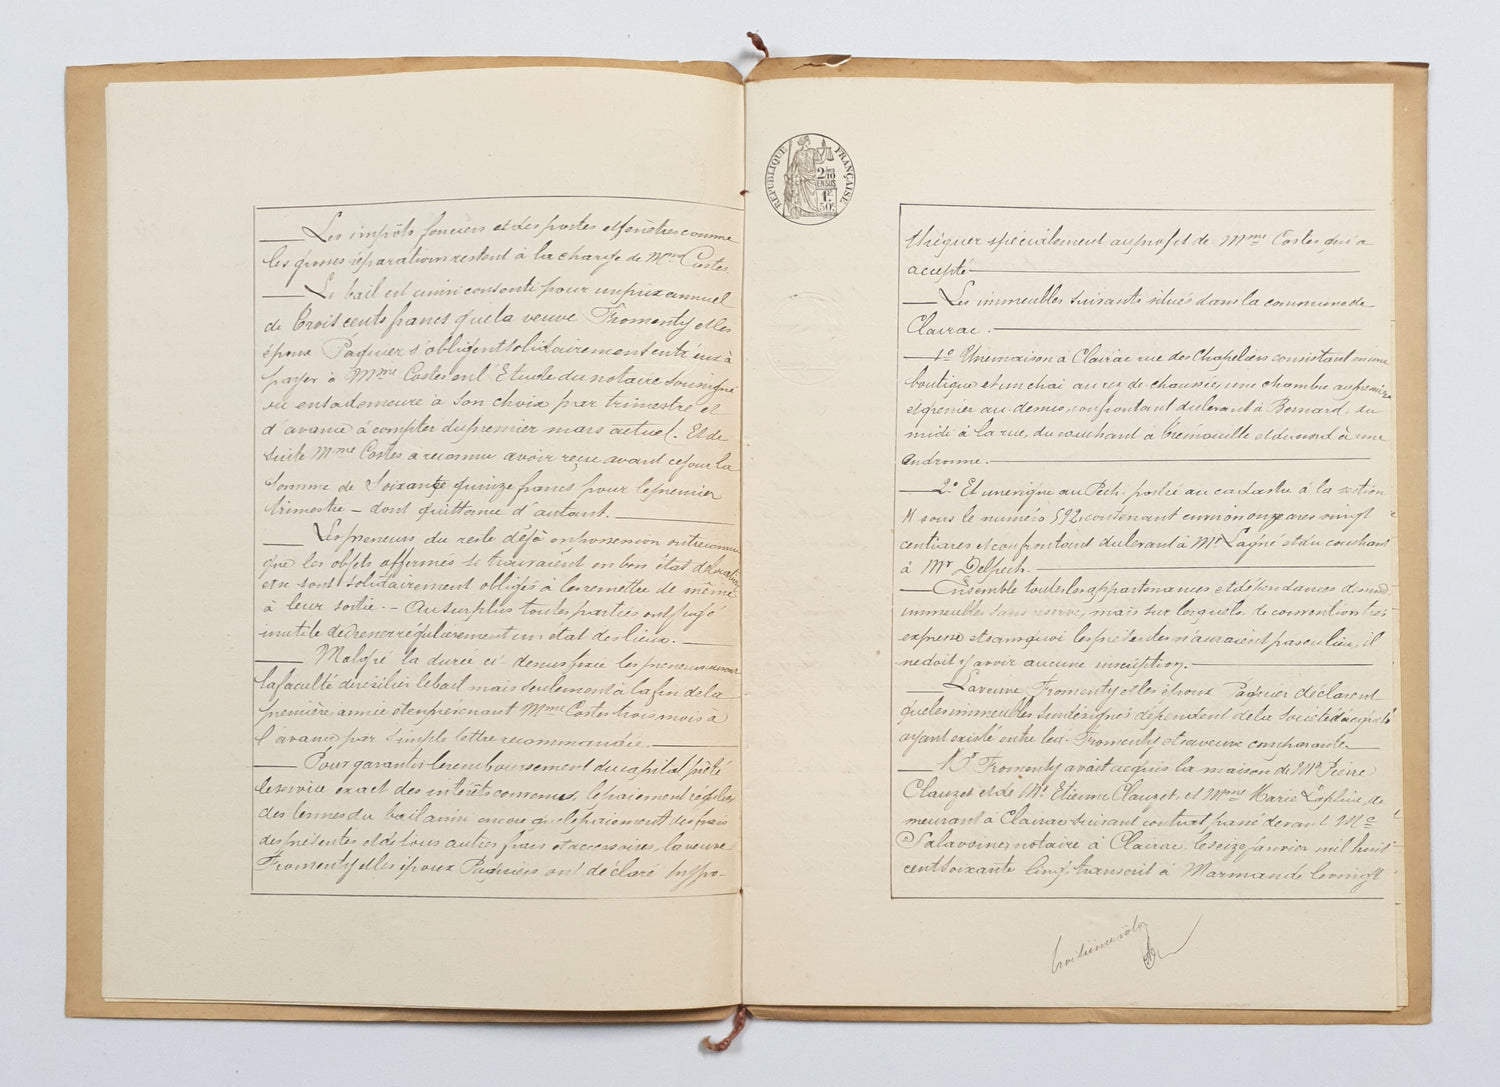 Les impôts fonciers et des portes et fenêtres comme
les grosses réparations restent à la charge de Mme Costes.
Le bail est ainsi consenti pour un prix annuel
de trois cents francs que la veuve Fromenty et les
époux Paquier s'obligent solidairement entr'eux à
payer à Mme Costes en l'Etude du notaire soussigné
ou en sa demeure à son choix par trimestre et
d'avance à compter du premier mars actuel. Et de
suite Mme Costes a reconnu avoir reçu avant ce jour la
somme de Soixante quinze francs pour le premier
trimestre – dont quittance d'autant.
Les preneurs du reste déjà en possession ont reconnu
que les objets affermés se trouvaient en bon état
et se sont solidairement obligés à les remettre de même
à leur sortie. – Au surplus toutes parties ont jugé
inutile de dresser régulièrement un état des lieux.
Malgré la durée ci-dessus fixée les preneurs auront
la faculté de résilier le bail mais seulement à la fin de la
première année et en prévenant Mme Costes trois mois à
l'avance par simple lettre recommandée.
Pour garantir le remboursement du capital prêté
le service exact des intérêts convenus, le paiement régulier
des termes du bail ainsi encore que le paiement des frais
des présentes et de tous autres frais et accessoires, la veuve
Fromenty et les époux Paquier ont déclaré hypo-
REPUBLIQUE FRANÇAISE
2/10
EN SUS
1F
50c
théquer spécialement au profit de Mme Costes qui a
accepté
Les immeubles suivants situés dans la commune de
Clairac.
1° Une maison à Clairac rue des Chapeliers consistant en une
boutique et un chai au rez de chaussée, une chambre au premier
et grenier au-dessus, confrontant du levant à Bernard, du
midi à la rue, du couchant à Grenouille et du nord à une
androune.
2° Et une vigne au Pech, portée au cadastre à la section
H sous le numéro 592, contenant environ onze ares vingt
centiares et confrontant du levant à Mr Lagné et du couchant
à Mr Delpech.
Ensemble toutes les appartenances et dépendances desd.
immeubles sans reserve, mais sur lesquels de convention
expresse et sans quoi les présentes n'auraient pas eu lieu, il
ne doit y avoir aucune inscription.
La veuve Fromenty et les époux Paquier déclarent
que les immeubles sus désignés dépendent de la société d'acquêts
ayant existé entre led. Fromenty et sa veuve comparante.
Mr Fromenty avait acquis la maison de Mr Pierre
Clauzet et de Mr Etienne Clauzet, et Mme Marie de
meurant à Clairac suivant contrat passé devant Me
Salavoine, notaire à Clairac, le seize janvier mil huit
cent soixante cinq, transcrit à Marmande le vingt
troisième rôle